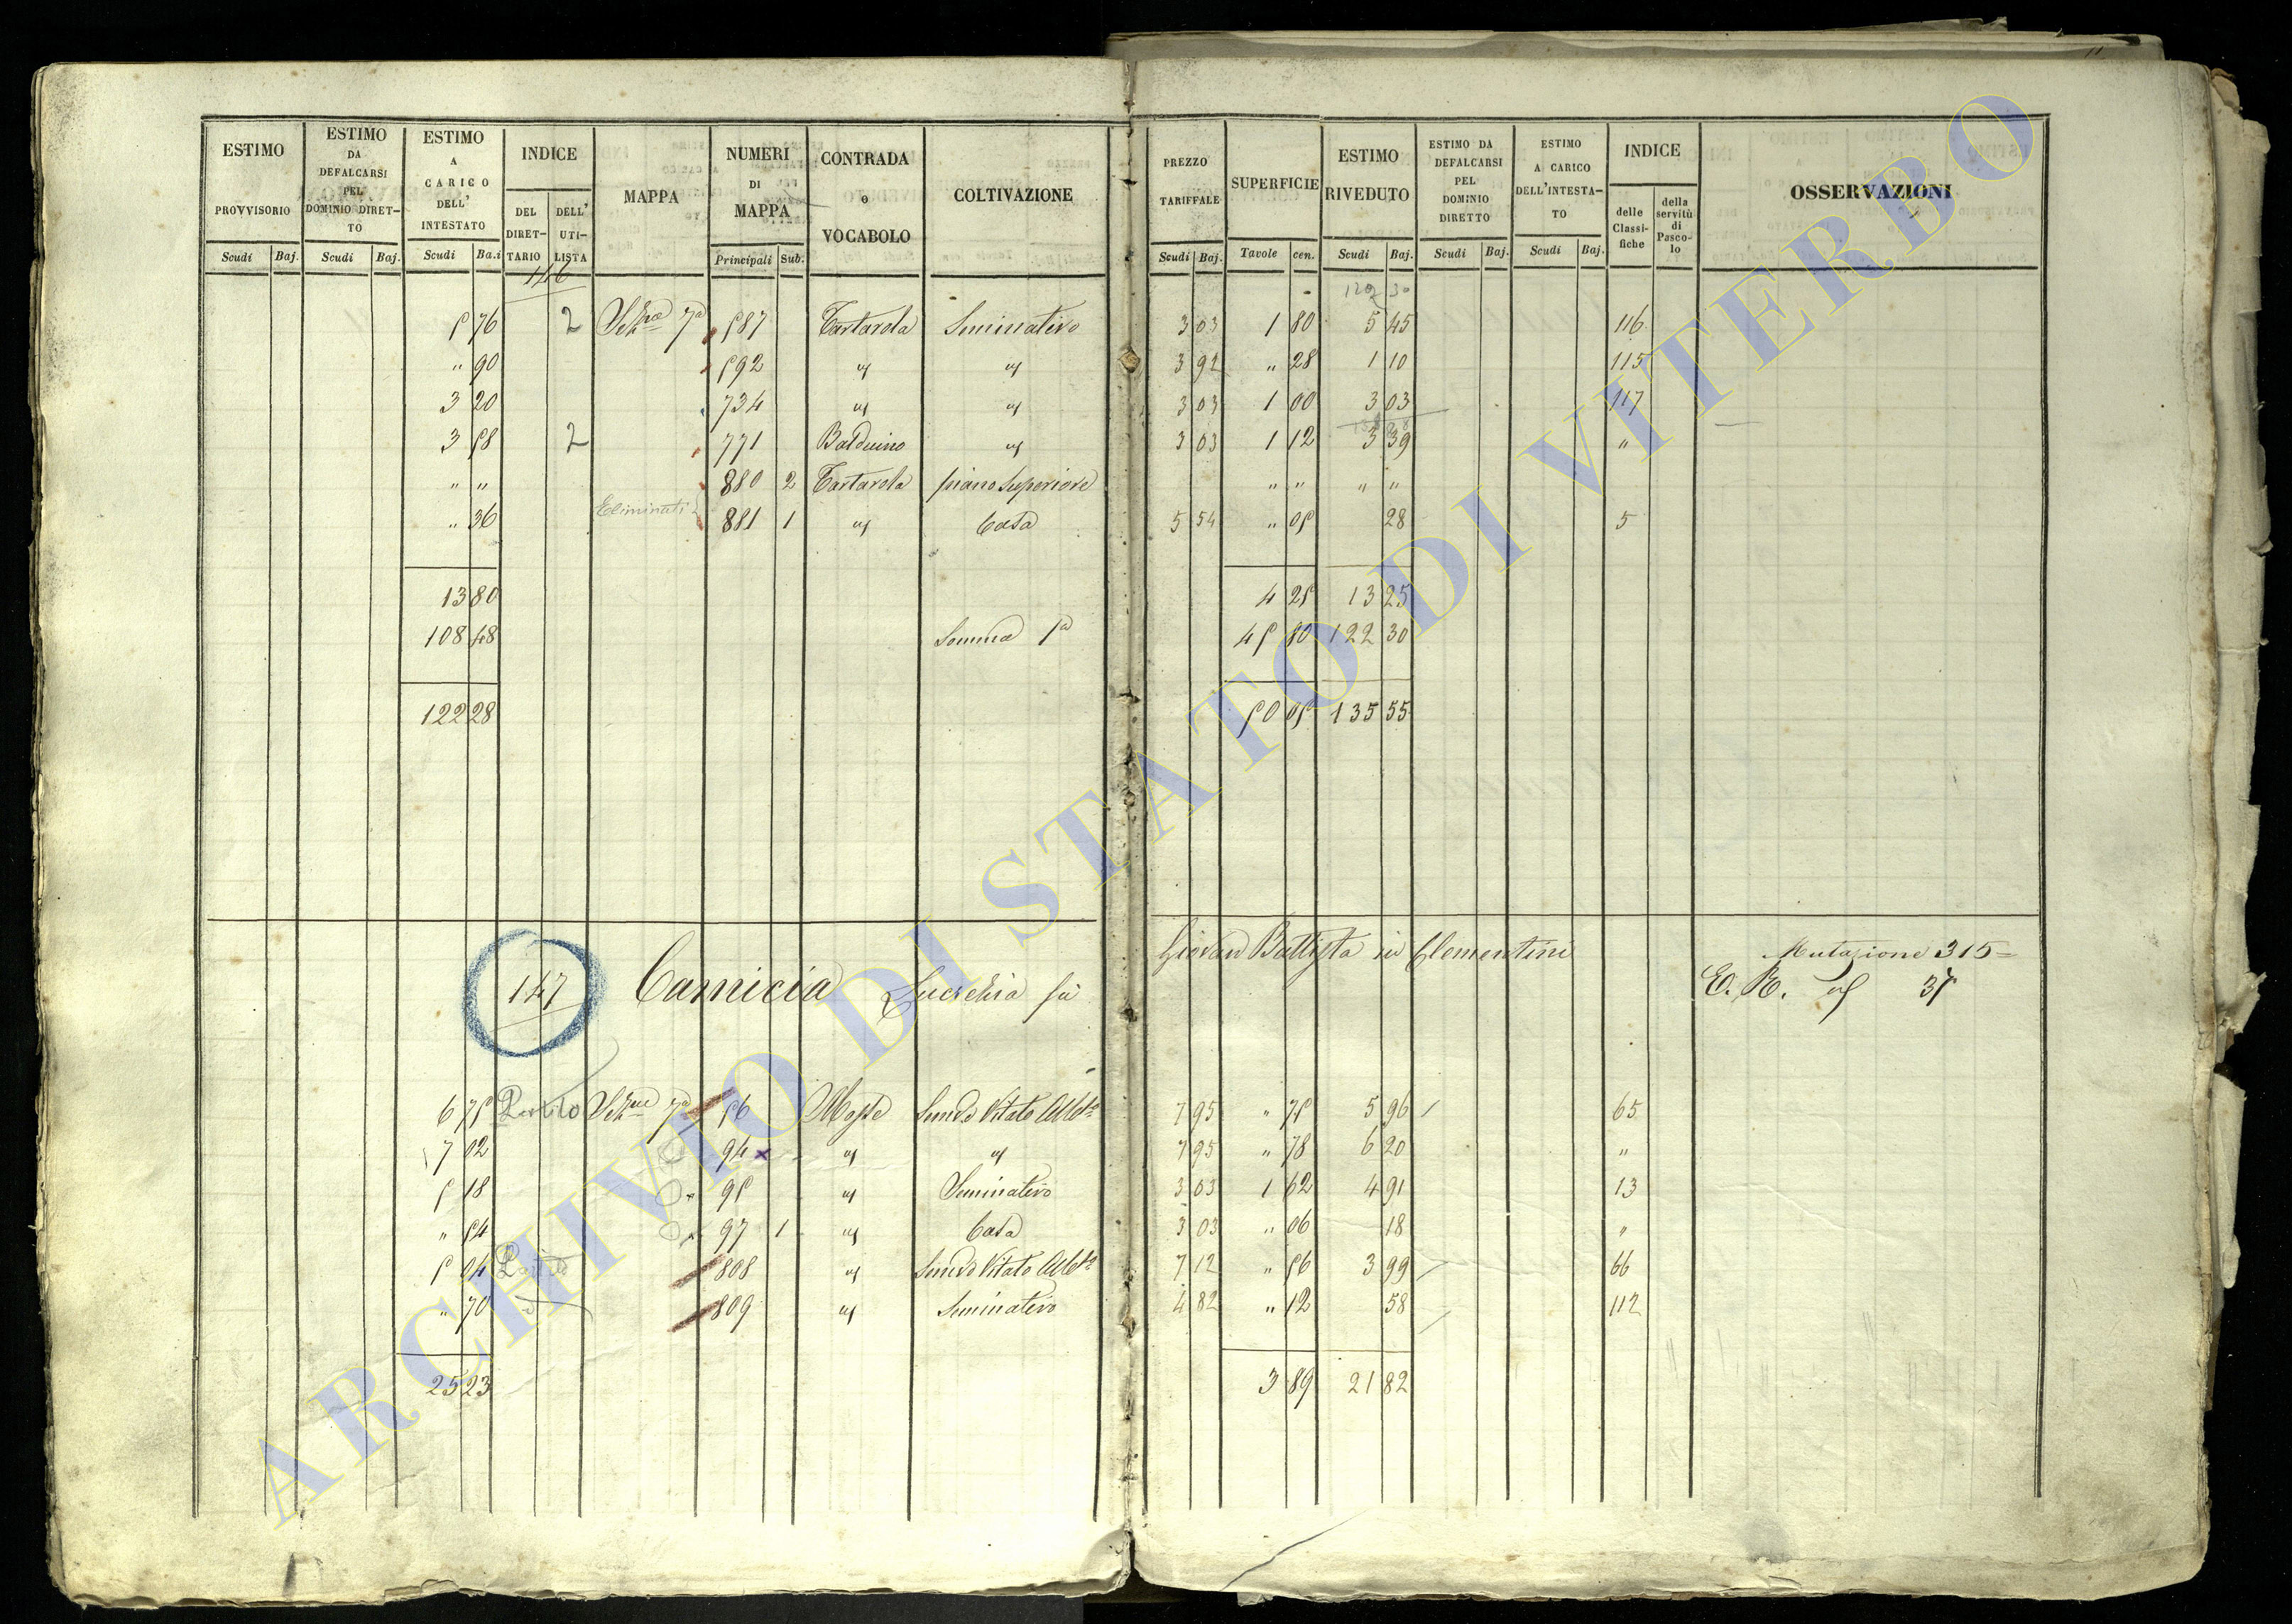 ESTIMO PROVVISORIO Scudi Baj.
ESTIMO DA DEFALCARSI PEL DOMINIO DIRET-TO Scudi Baj.
ESTIMO A CARICO DELL' INTESTATO Scudi Ba.i
INDICE DEL DIRET-TARIO DELL' UTI-LISTA
MAPPA
NUMERI DI MAPPA Principali Sub.
CONTRADA e VOCABOLO
COLTIVAZIONE
PREZZO TARIFFALE Scudi Baj.
SUPERFICIE Tavole cen.
ESTIMO RIVEDUTO Scudi Baj.
ESTIMO DA DEFALCARSI PEL DOMINIO DIRETTO Scudi Baj.
ESTIMO A CARICO DELL'INTESTA-TO Scudi Baj.
INDICE delle Classi-fiche della servitù di Pasco-lo
OSSERVAZIONI
146
5 76 2 7a 587 Tartarola Seminativo 3 03 1 80 5 45 116
" 90 592 " " 3 92 " 28 1 10 115
3 20 734 " " 3 03 1 00 3 03 117
3 58 2 771 Balduino " 3 03 1 12 3 39 "
" " 880 2 Tartarola piano Superiore " " " "
" 36 Eliminati 881 1 " Casa 5 54 " 05 28 5
13 80 4 25 13 25
108 48 Somma 1a 45 80 122 30
122 28 50 05 135 55
147 Camicia Lucrehia fu Giovan Battista in Clementini Mutazione 315=
E. R. 35
6 75 Partito 7a 56 Semvo Vitato Albto 7 95 " 75 5 96 65
7 02 94 x " " 7 95 " 78 6 20 "
5 18 95 " Seminativo 3 03 1 62 4 91 13
" 54 97 1 " Casa 3 03 " 06 18 "
5 04 Partito 808 " Semvo Vitato Albto 7 12 " 56 3 99 66
" 70 809 " Seminativo 4 82 " 12 58 112
25 23 3 89 21 82
ARCHIVIO DI STATO DI VITERBO